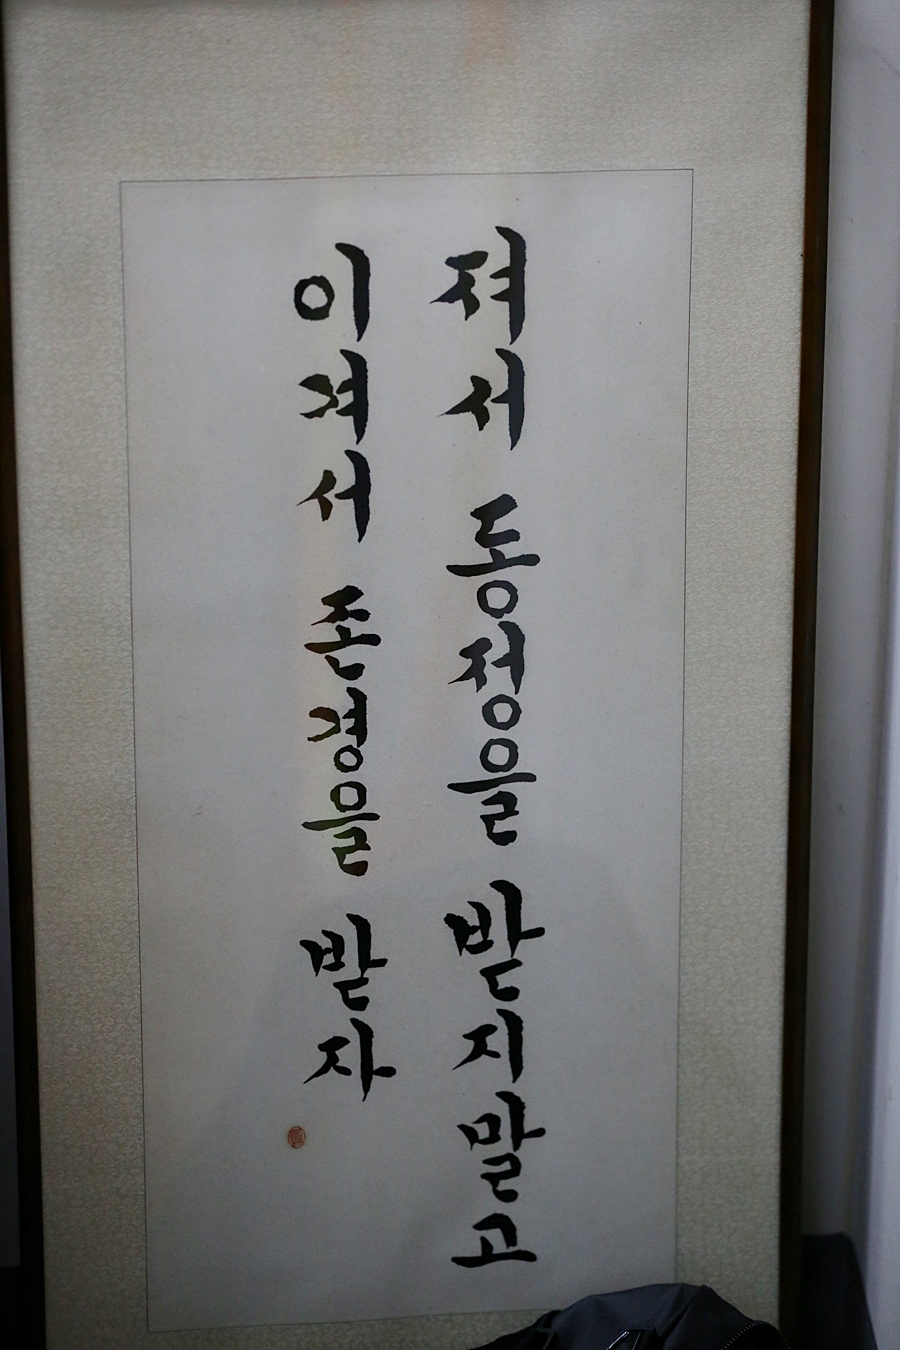 져서 동정을 받지말고
이겨서 존경을 받자